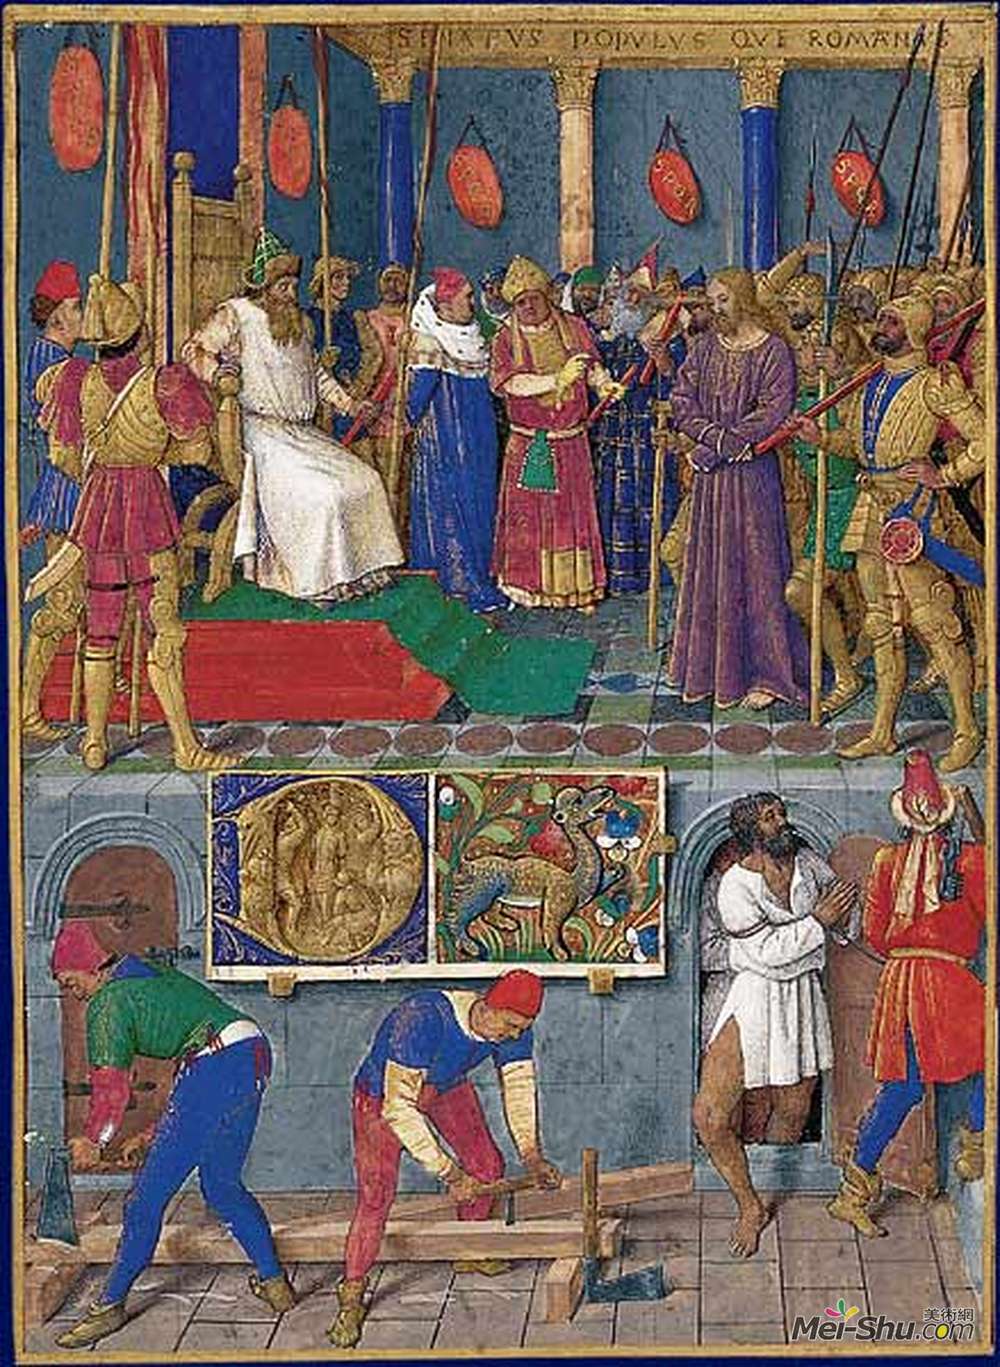 SENATVS POPVLVS QVE ROMANVS
SPQR
SPQR
美術網
Mei-Shu.com